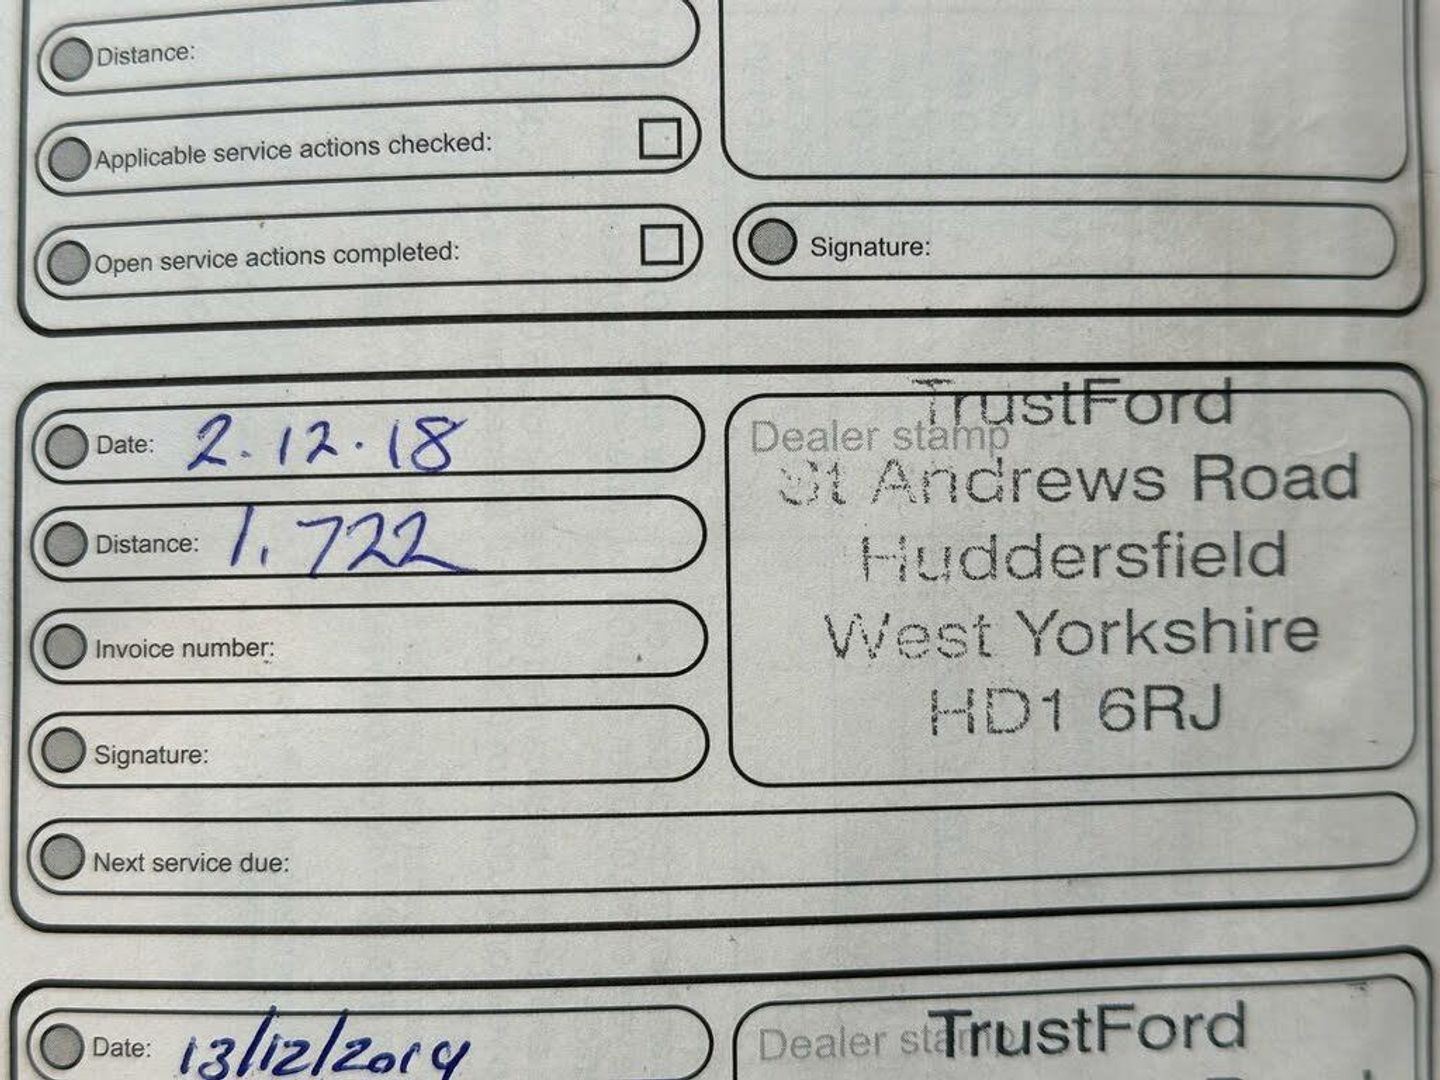 Distance:
Applicable service actions checked:
Open service actions completed:
Signature:
Date: 2.12.18
Distance: 1.722
Invoice number:
Signature:
Next service due:
Dealer stamp
TrustFord
St Andrews Road
Huddersfield
West Yorkshire
HD1 6RJ
Date: 13/12/2019
Dealer stamp
TrustFord